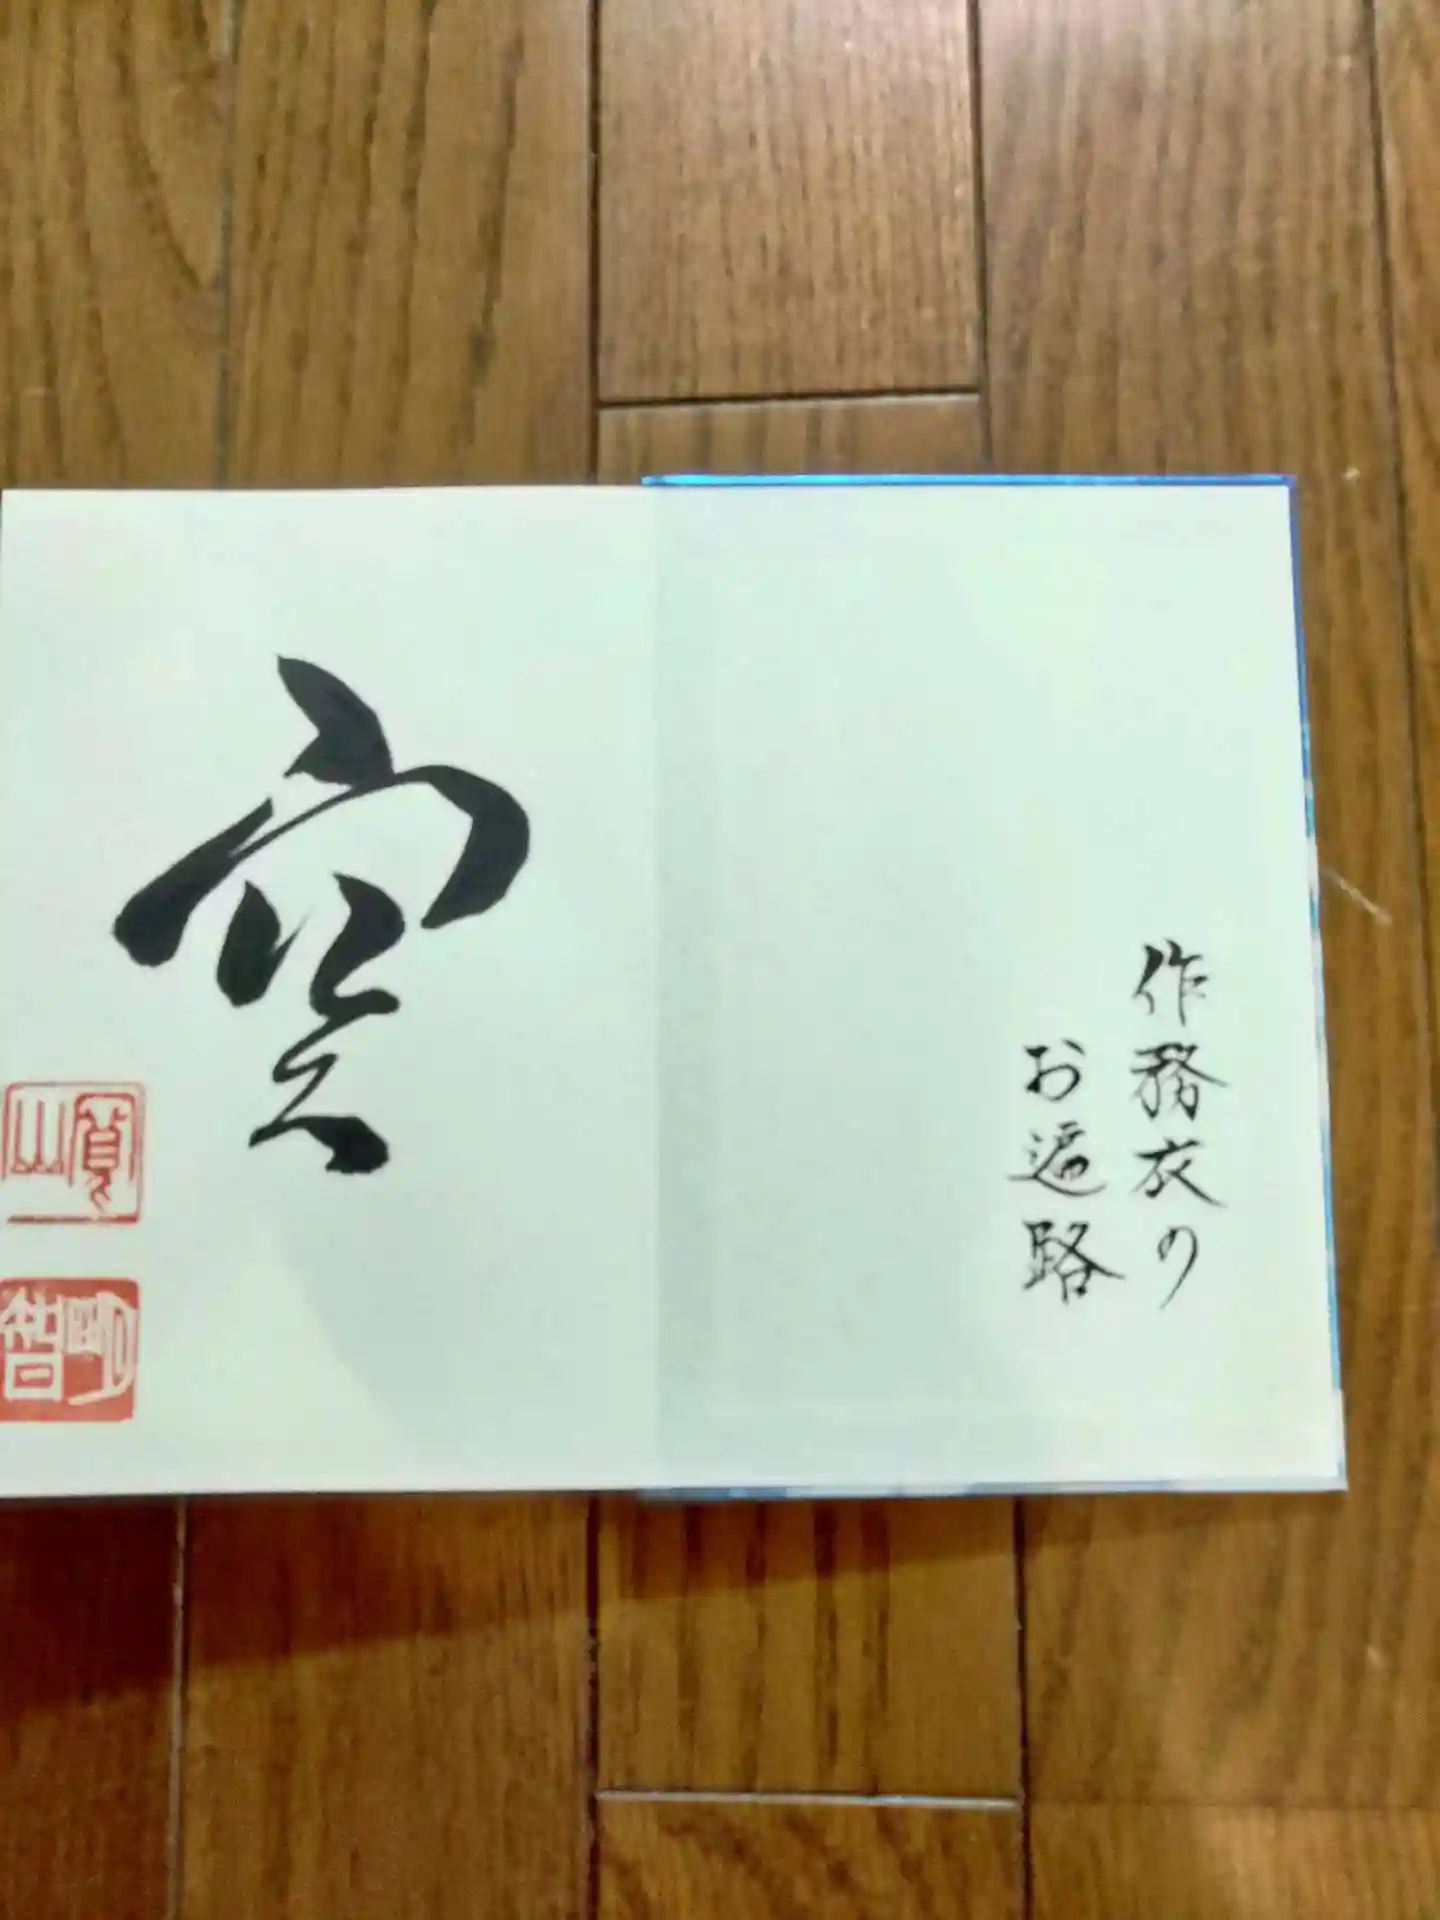 作務衣の
お遍路
空
明智